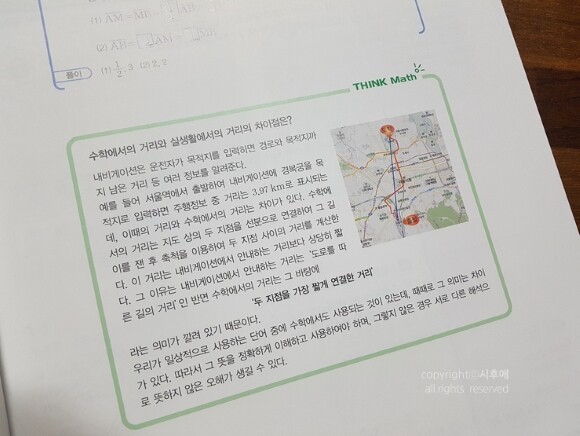 (1) AM = MB =
(2) AB = AM =
풀이 (1) 1/2, 3 (2) 2, 2
THINK Math
수학에서의 거리와 실생활에서의 거리의 차이점은?
내비게이션은 운전자가 목적지를 입력하면 경로와 목적지까
지 남은 거리 등 여러 정보를 알려준다.
예를 들어 서울역에서 출발하여 내비게이션에 경복궁을 목
적지로 입력하면 주행정보 중 거리는 3.97 km로 표시되는
데, 이때의 거리와 수학에서의 거리는 차이가 있다. 수학에
서의 거리는 지도 상의 두 지점을 선분으로 연결하여 그 길
이를 잰 후 축척을 이용하여 두 지점 사이의 거리를 계산한
다. 이 거리는 내비게이션에서 안내하는 거리보다 상당히 짧
다. 그 이유는 내비게이션에서 안내하는 거리는 '도로를 따
른 길의 거리'인 반면 수학에서의 거리는 그 바탕에
'두 지점을 가장 짧게 연결한 거리'
라는 의미가 깔려 있기 때문이다.
우리가 일상적으로 사용하는 단어 중에 수학에서도 사용되는 것이 있는데, 때때로 그 의미는 차이
가 있다. 따라서 그 뜻을 정확하게 이해하고 사용하여야 하며, 그렇지 않은 경우 서로 다른 해석으
로 뜻하지 않은 오해가 생길 수 있다.
copyrightⓒ시후애
all rights reserved